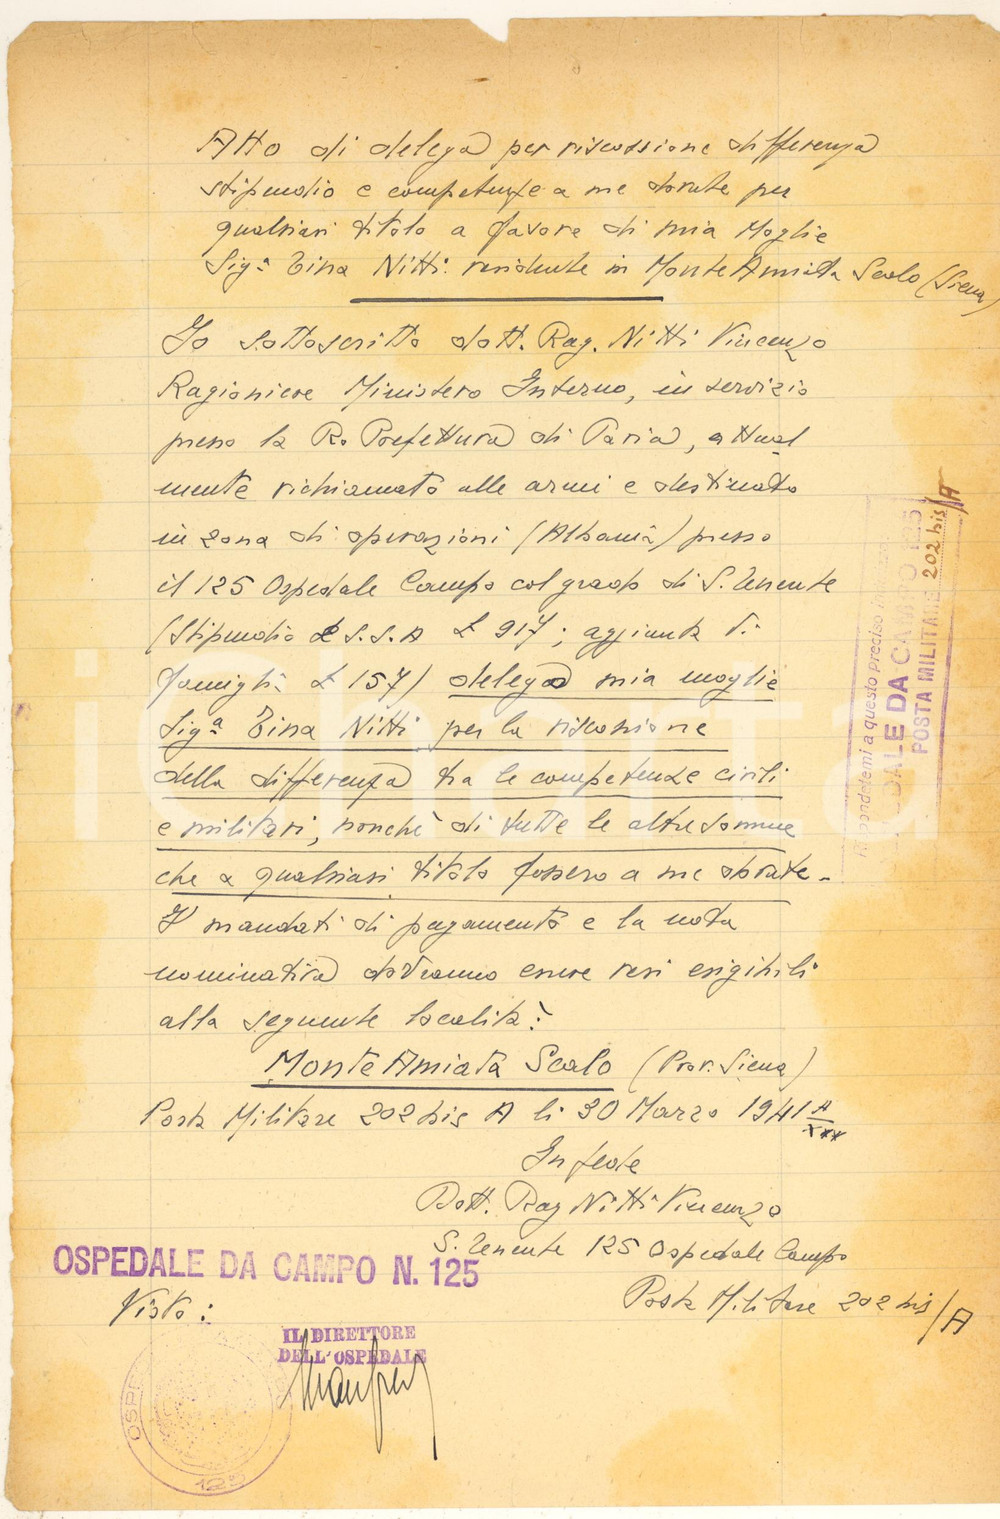 Atto di delega per riscossione differenza
stipendio e competenze a me dovute per
qualsiasi titolo a favore di mia Moglie
Sig.a Tina Nitti residente in Monte Amiata Scalo (Siena)
Io sottoscritto dott. Rag. Nitti Vincenzo
Ragioniere Ministero Interno, in servizio
presso la R. Prefettura di Pavia, attual
mente richiamato alle armi e destinato
in zona di operazioni (Albania) presso
il 125 Ospedale Campo col grado di S. Tenente
(Stipendio e S.S.A £ 917; aggiunta di
famiglia £ 157) delega mia moglie
Sig.a Tina Nitti per la riscossione
della differenza tra le competenze civili
e militari, nonché di tutte le altre somme
che a qualsiasi titolo fossero a me dovute.
I mandati di pagamento e la nota
nominativa dovranno essere resi esigibili
alla seguente località:
Monte Amiata Scalo (Prov. Siena)
Posta Militare 202 bis A li 30 Marzo 1941 A
XIX
In fede
Dott. Rag Nitti Vincenzo
S. Tenente 125 Ospedale Campo
Posta Militare 202 bis/A
OSPEDALE DA CAMPO N. 125
Visto:
IL DIRETTORE
DELL'OSPEDALE
125
Rispondetemi a questo preciso
DALE DA CA O 125
POSTA MILITARE 202 bis/A